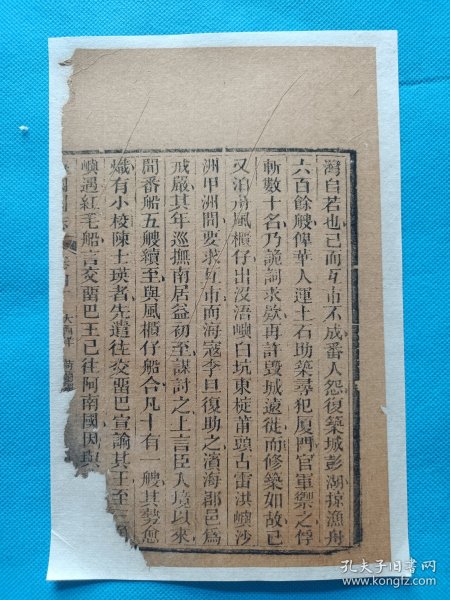 灣自若也已而互市不成番人怨復築城彭湖掠漁舟
六百餘艘俾華人運土石助築尋犯厦門官軍禦之俘
斬數十名乃詭詞求欵再許毀城遠徙而修築如故已
又泊舟風櫃仔出沒浯嶼白坑東椗莆頭古雷洪嶼沙
洲甲洲間要求互市而海寇李旦復助之濱海郡邑爲
戒嚴其年巡撫南居益初至謀討之上言臣入境以來
聞番船五艘續至與風櫃仔船合凡十有一艘其勢愈
熾有小校陳士瑛者先遣徃交畱巴宣諭其王至三
嶼遇紅毛船言交畱巴王已往阿南國因與
孔夫子旧书网
www.kongfz.com